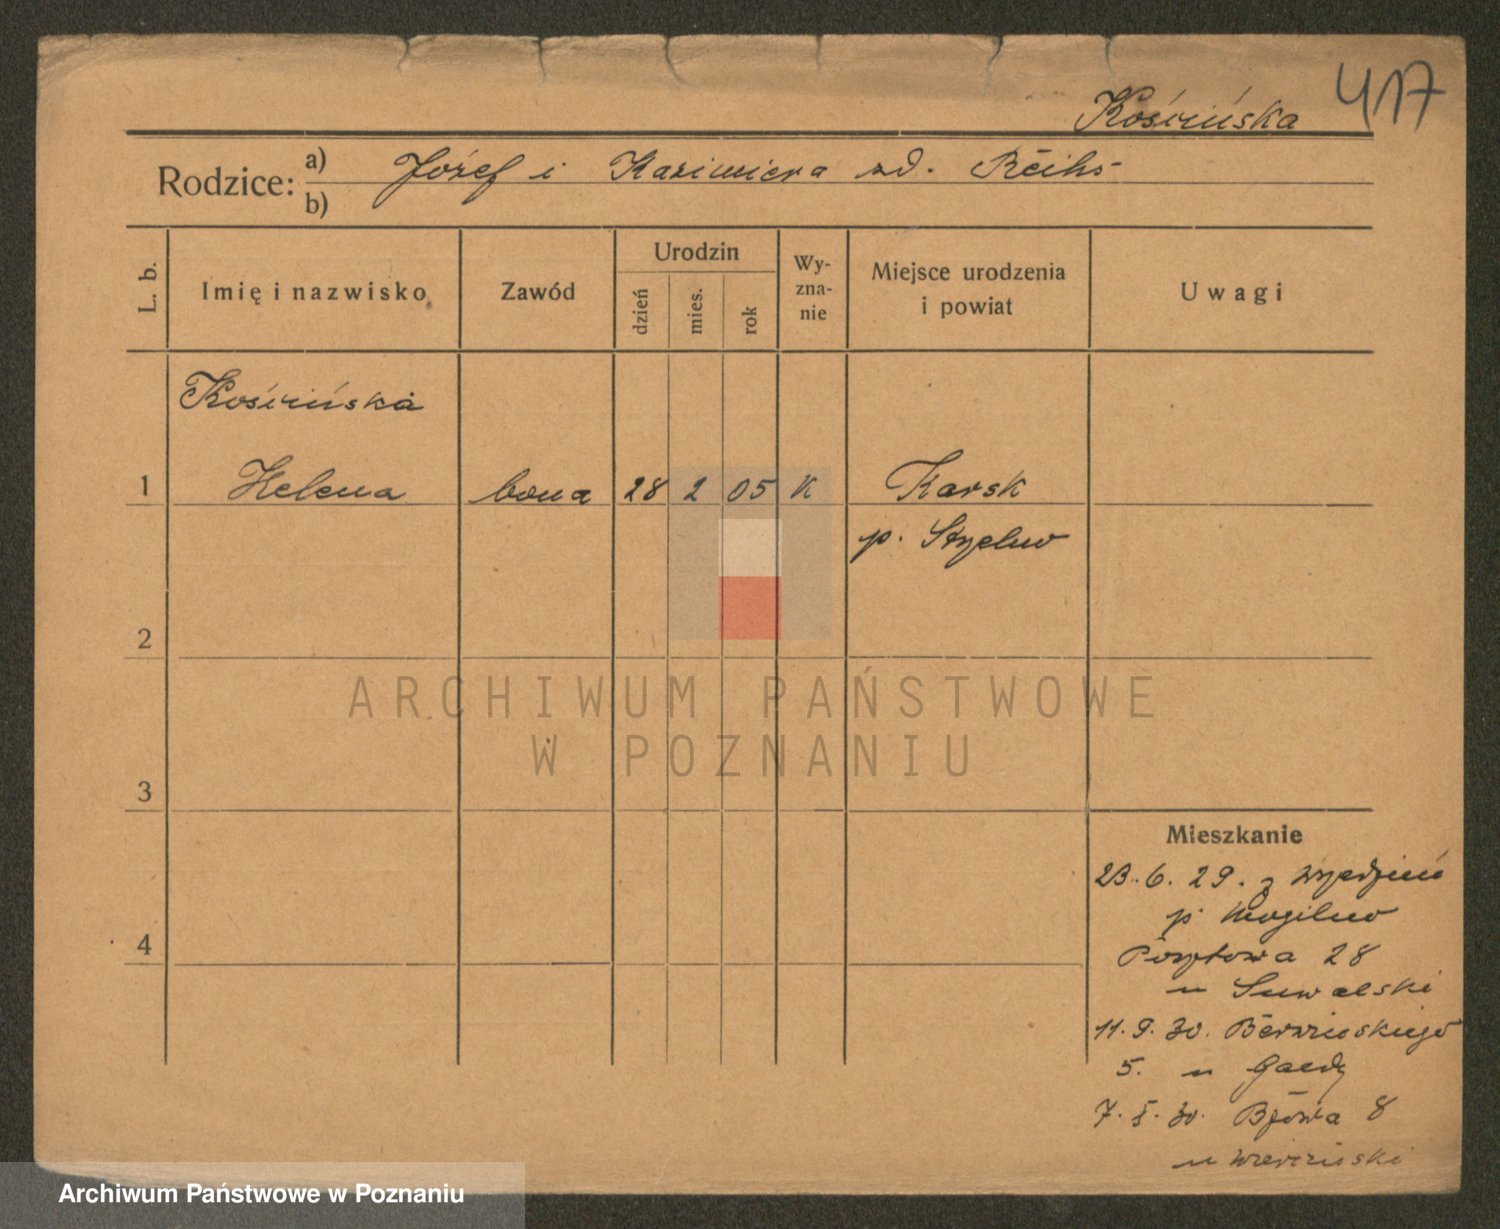 417
Kościńska
Rodzice: a) Józef i Kazimiera zd.
b)
L. b. Imię i nazwisko Zawód Urodzin dzień mies. rok Wy- zna- nie Miejsce urodzenia i powiat Uwagi
Kościńska
1 Helena bona 28 2 05 K Karsk
p. Strzelno
2
3
4
Mieszkanie
23.6.29. z
p. Mogilno
Pocztowa 28
u Suwalski
11.9.30. Berwińskiego
5. u Gaedy
7.X.30. 8
u
ARCHIWUM PAŃSTWOWE
W POZNANIU
Archiwum Państwowe w Poznaniu